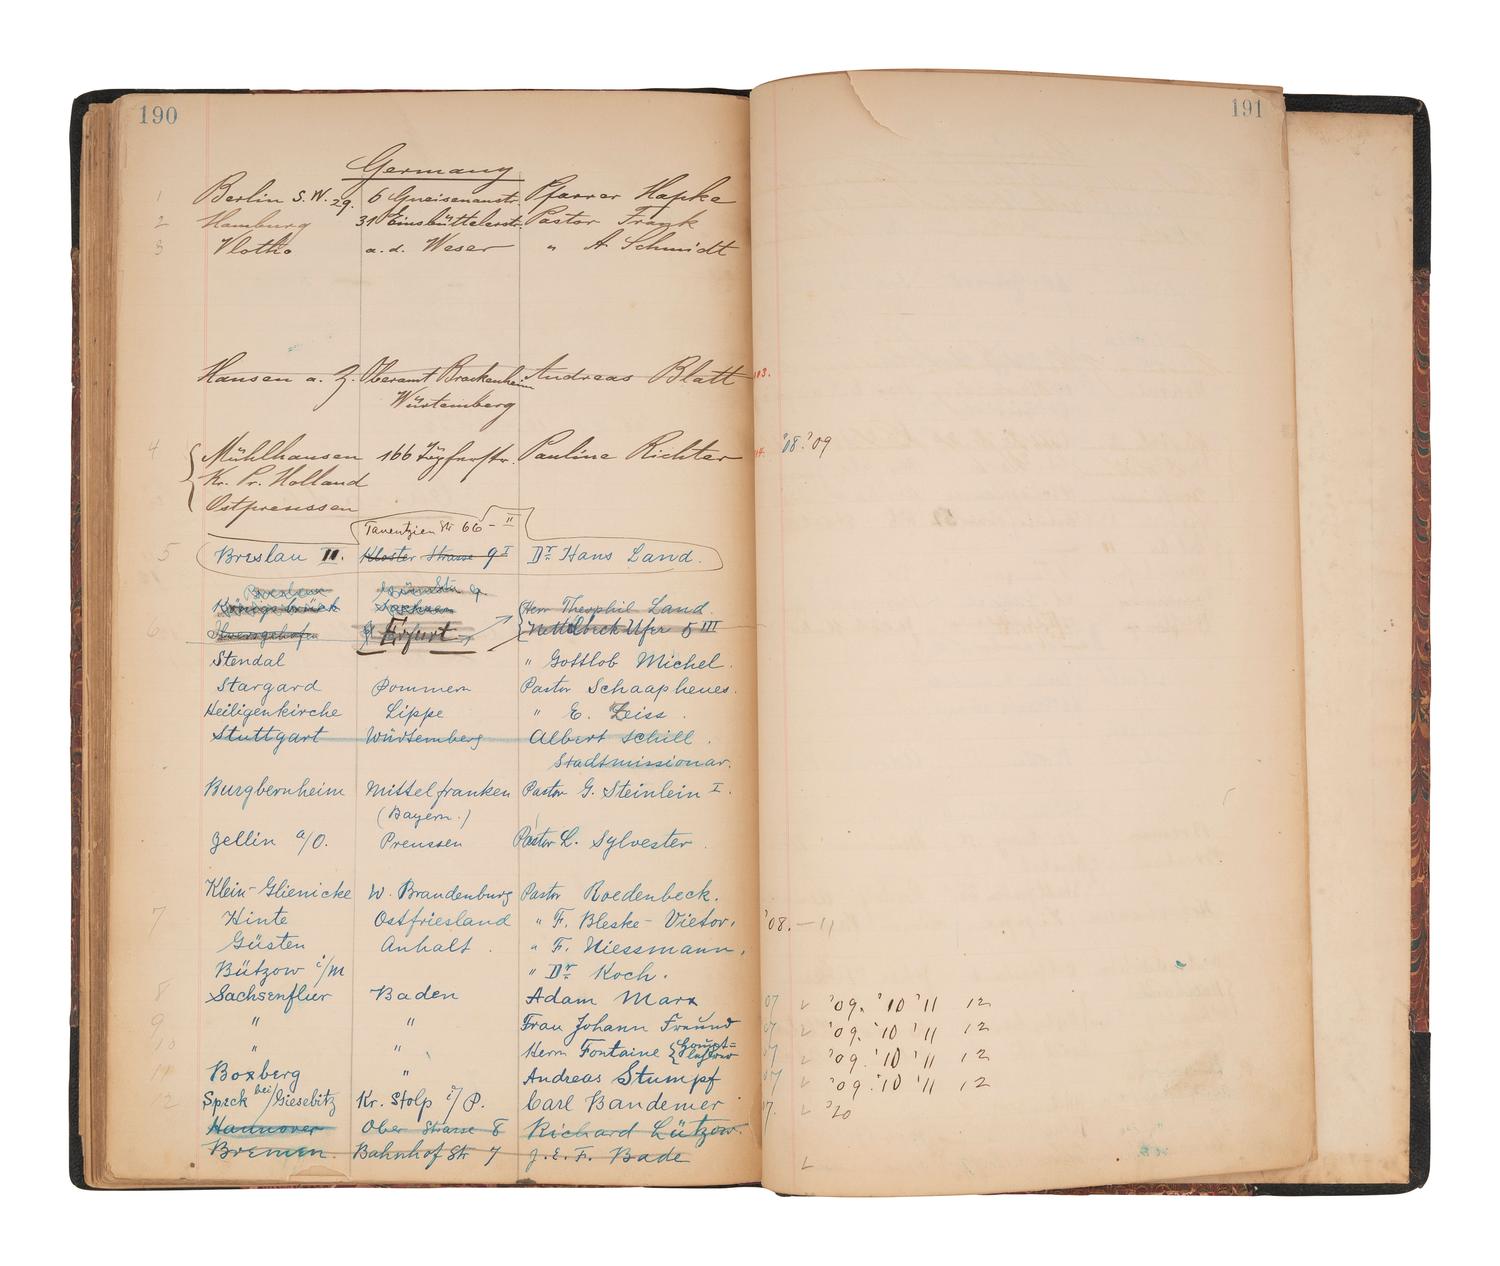 190
191
Germany
1 Berlin S.W. 29. 6 Gneisenaustr. Pfarrer Hapke
2 Hamburg 31 Eimsbüttelerstr. Pastor Frank
3 Vlotho a. d. Weser " A. Schmidt
Hausen a. Z. Oberamt Brackenheim Andreas Blatt
Würtemberg
4 Mühlhausen 166 Pauline Richter '08. '09
Kr. Pr. Holland
Ostpreussen
Tauentzien Str 66 - II
5 Breslau II. Kloster Strasse 9 I Dr. Hans Land.
Breslau 9
Königsbrück Sachsen Herr Theophil Land.
6 Ilversgehofen Erfurt Nettelbeck Ufer 5 III
Stendal " Gottlob Michel.
Stargard Pommern Pastor Schaapheues.
Heiligenkirche Lippe " E. Zeiss.
Stuttgart Würtemberg Albert Schill.
Stadtmissionar.
Burgbernheim Mittelfranken Pastor G. Steinlein I.
(Bayern.)
Zellin a/O. Preussen Pastor L. Sylvester.
Klein-Glienicke W. Brandenburg Pastor Roedenbeck.
7 Hinte Ostfriesland " F. Bleske-Vietor. '08. - 11
Güsten Anhalt. " F. Niessmann.
Bützow i/M " Dr. Koch.
8 Sachsenflur Baden Adam Marx 07 '09. '10 '11 12
9 " " Frau Johann Freund 07 '09. '10 '11 12
10 " " Herrn Fontaine Haupt= 07 '09. '10 '11 12
lehrer
11 Boxberg " Andreas Stumpf 07 '09. '10 '11 12
12 Speck bei/Giesebitz Kr. Stolp i/P. Carl Bandemer 07. '20
Hannover Ober Strasse 8 Richard Lützow.
Bremen. Bahnhof Str 7 J. E. F. Bade